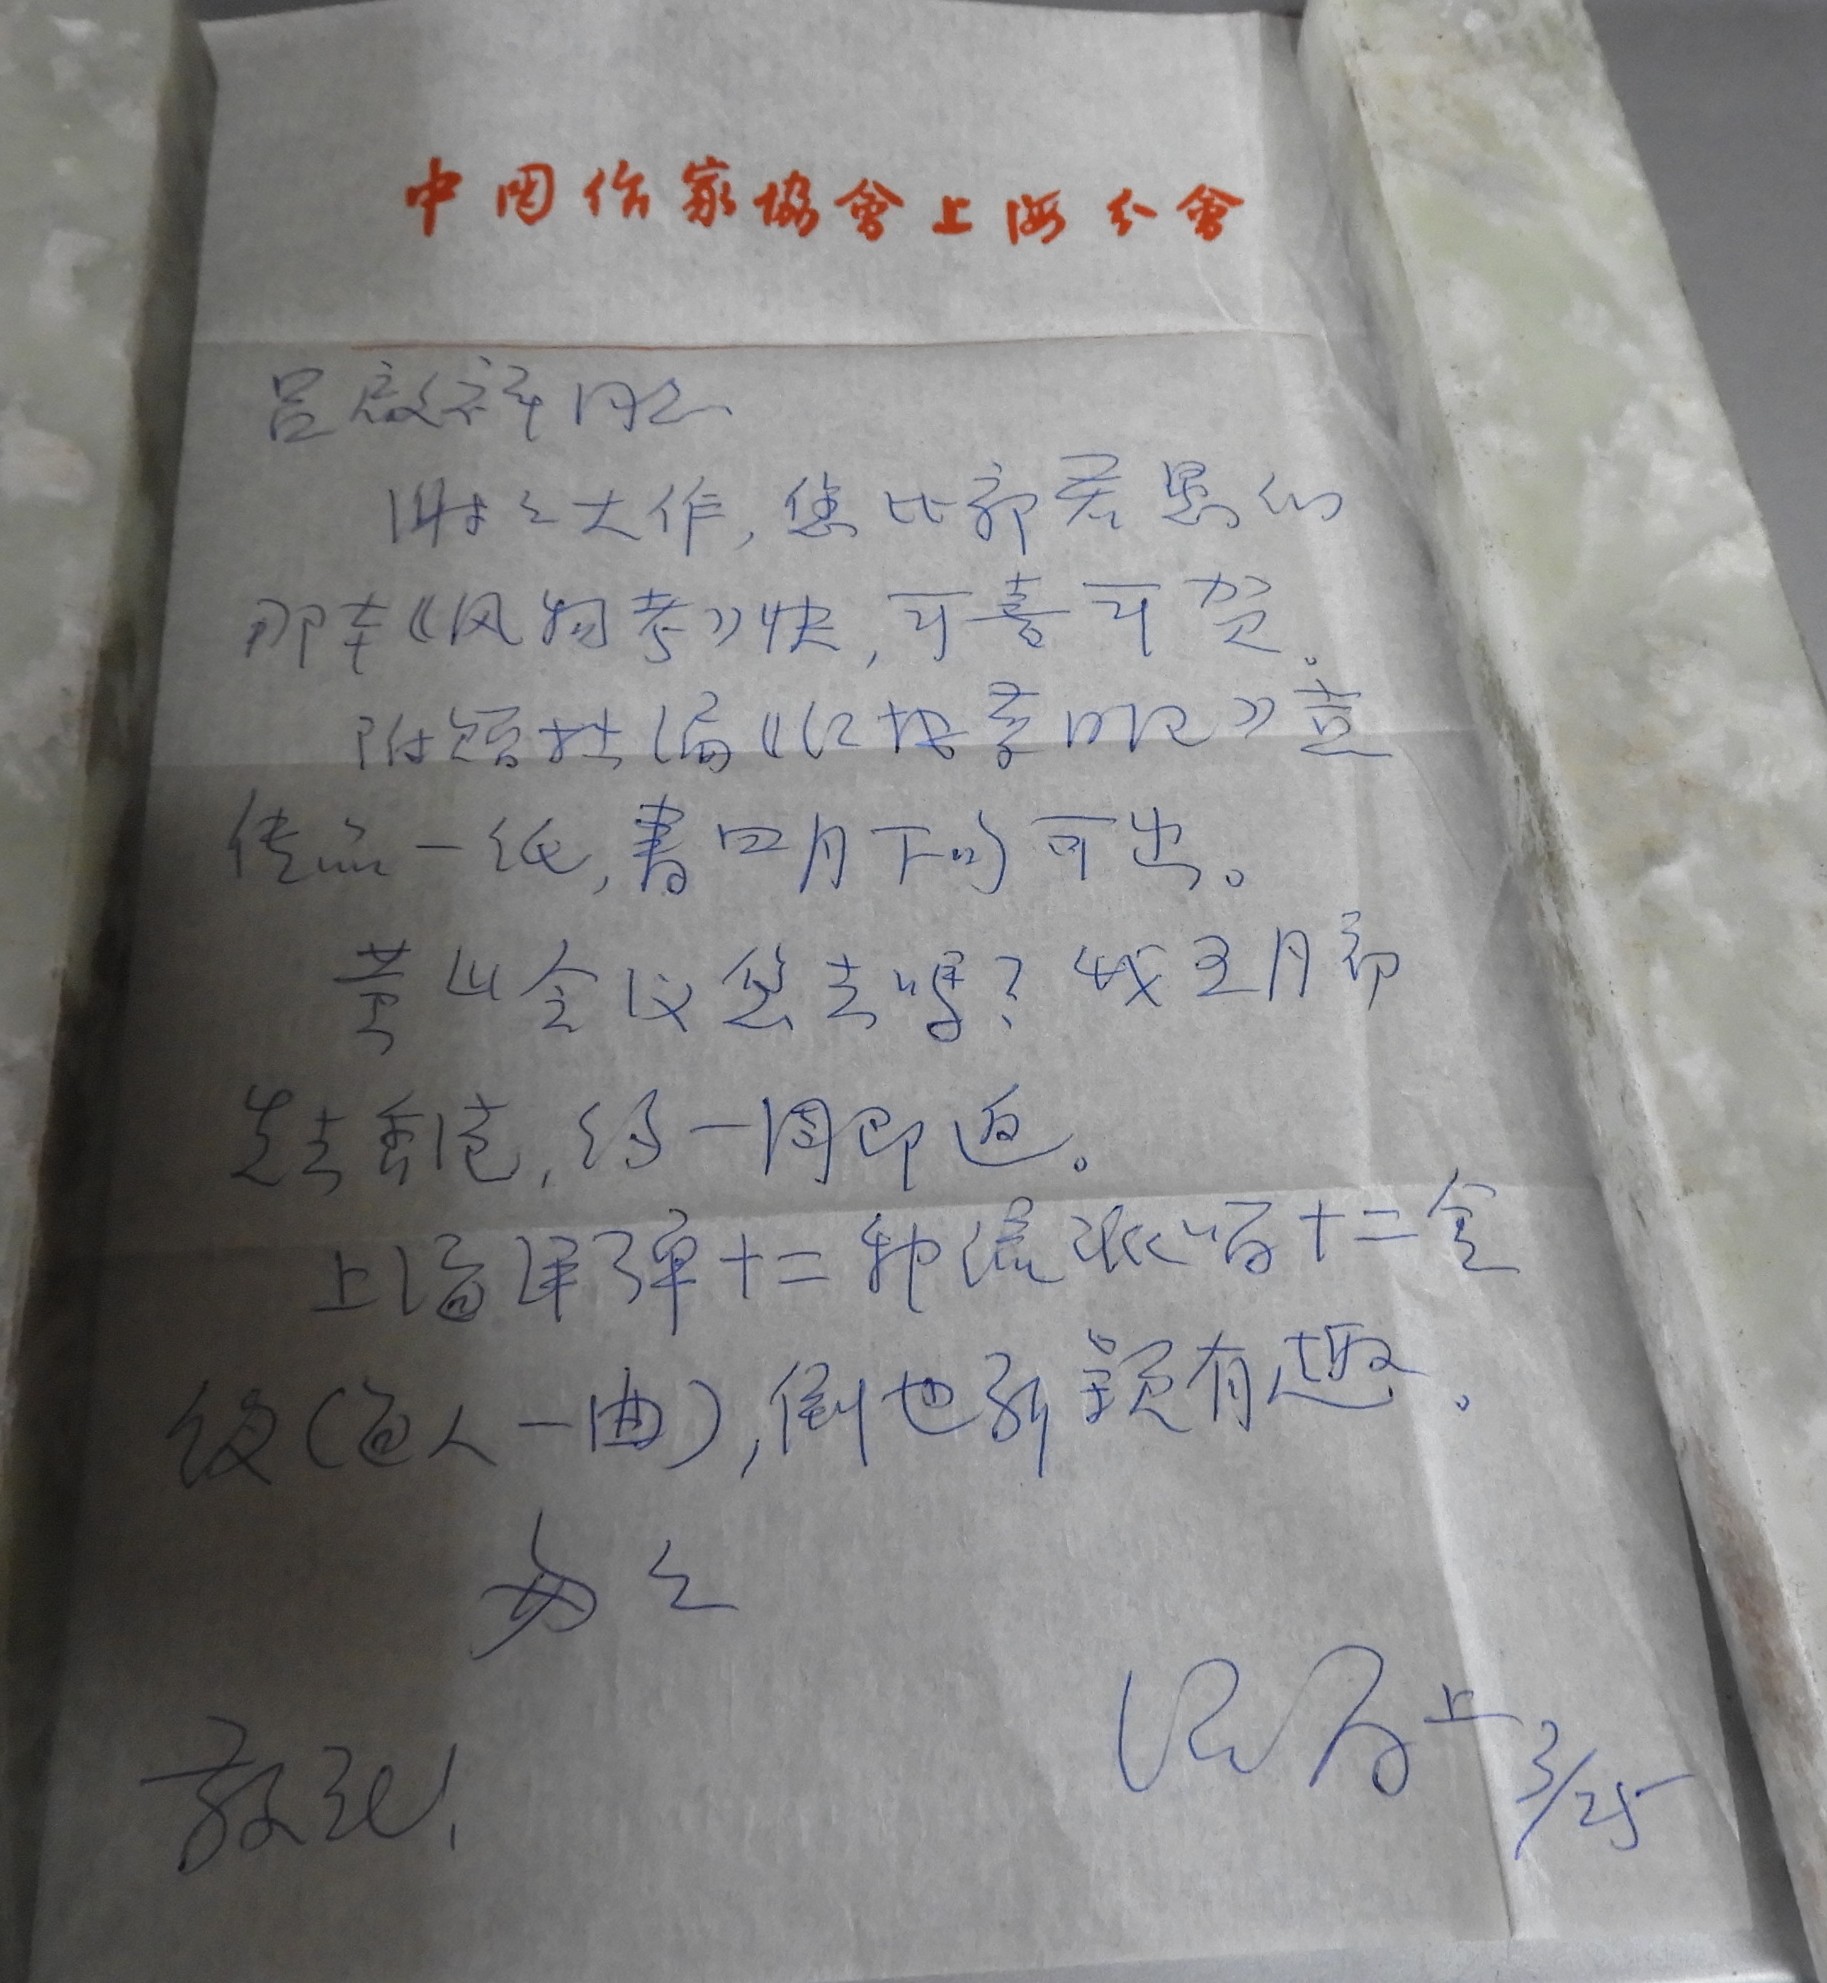 中国作家協會上海分會
吕启祥同志
谢谢大作，您比郭若愚们
那本《风物考》快，可喜可贺。
附短拙编《红楼梦 》宣
传品一纸，书四月下旬可出。
黄山会议您去吗？我五月初
先去香港，约一周即返。
上海评弹十二种流派唱十二金
钗（每人一曲），倒也新颖有趣。
匆匆
敬礼！
上 3/25